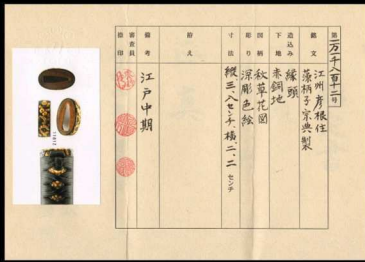 第一万一千八百十二号
銘文 江州彦根住
藻柄子宗典製
造込み 縁頭
下地 赤銅地
図柄 秋草花図
彫り 深彫色絵
寸法 縦三、八センチ、横二、二センチ
附え
備考 江戸中期
審査員
捺印